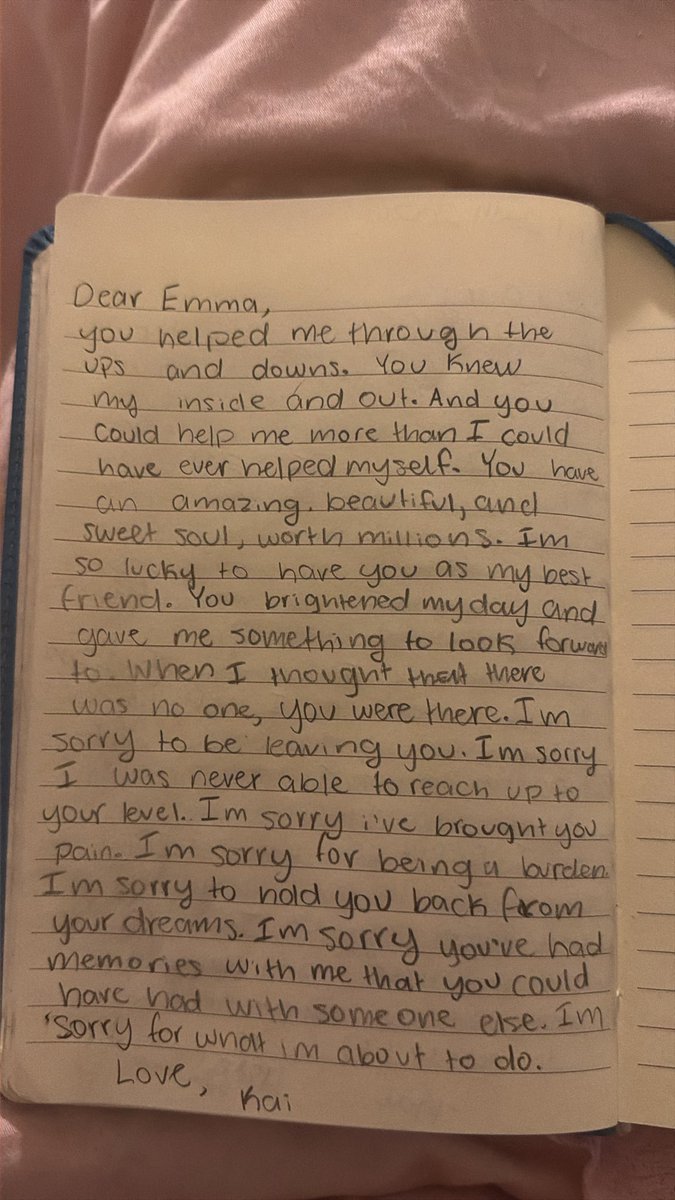 Dear Emma,
you helped me through the
ups and downs. You knew
my inside and out. And you
could help me more than I could
have ever helped myself. You have
an amazing. beautiful, and
sweet soul, worth millions. Im
so lucky to have you as my best
friend. You brightened my day and
gave me something to look forward
to. When I thought that there
was no one, you were there. Im
sorry to be leaving you. Im sorry
I was never able to reach up to
your level. Im sorry i've brought you
pain. Im sorry for being a burden.
Im sorry to hold you back from
your dreams. Im sorry you've had
memories with me that you could
have had with someone else. Im
sorry for what im about to do.
Love,
Kai